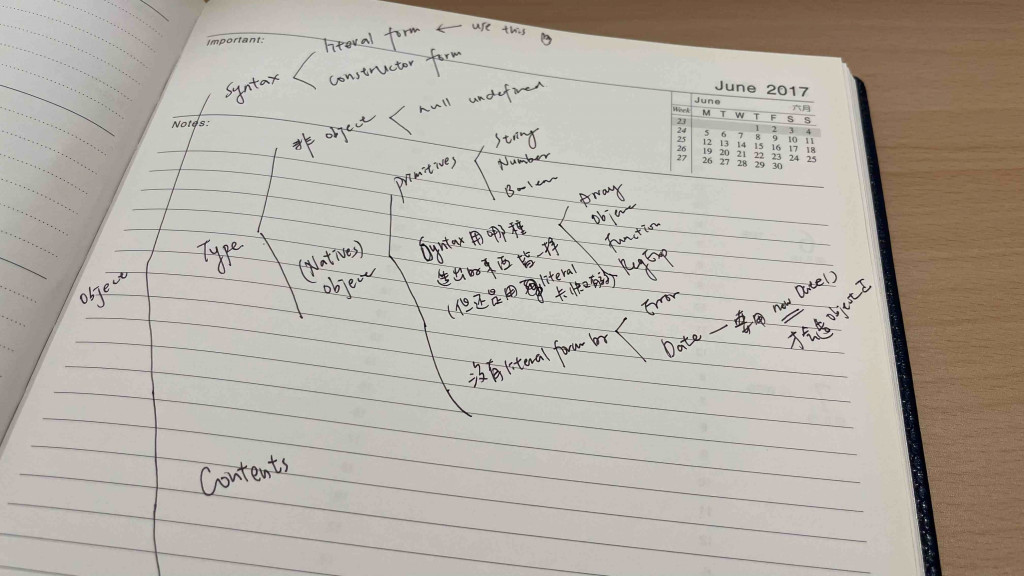 Important:
literal form ← use this
Syntax
constructor form
June 2017
June 六月
Week M T W T F S S
23 1 2 3 4
24 5 6 7 8 9 10 11
25 12 13 14 15 16 17 18
26 19 20 21 22 23 24 25
27 26 27 28 29 30
Notes:
非 object
null undefined
primitives
String
Number
Boolean
Type
(Natives)
object
Syntax 用哪種
造出的東西皆一樣
(但還是用 literal
Array
Object
Function
RegExp
object
沒有 literal form
Error
Date 一 要用 new Date()
object
Contents